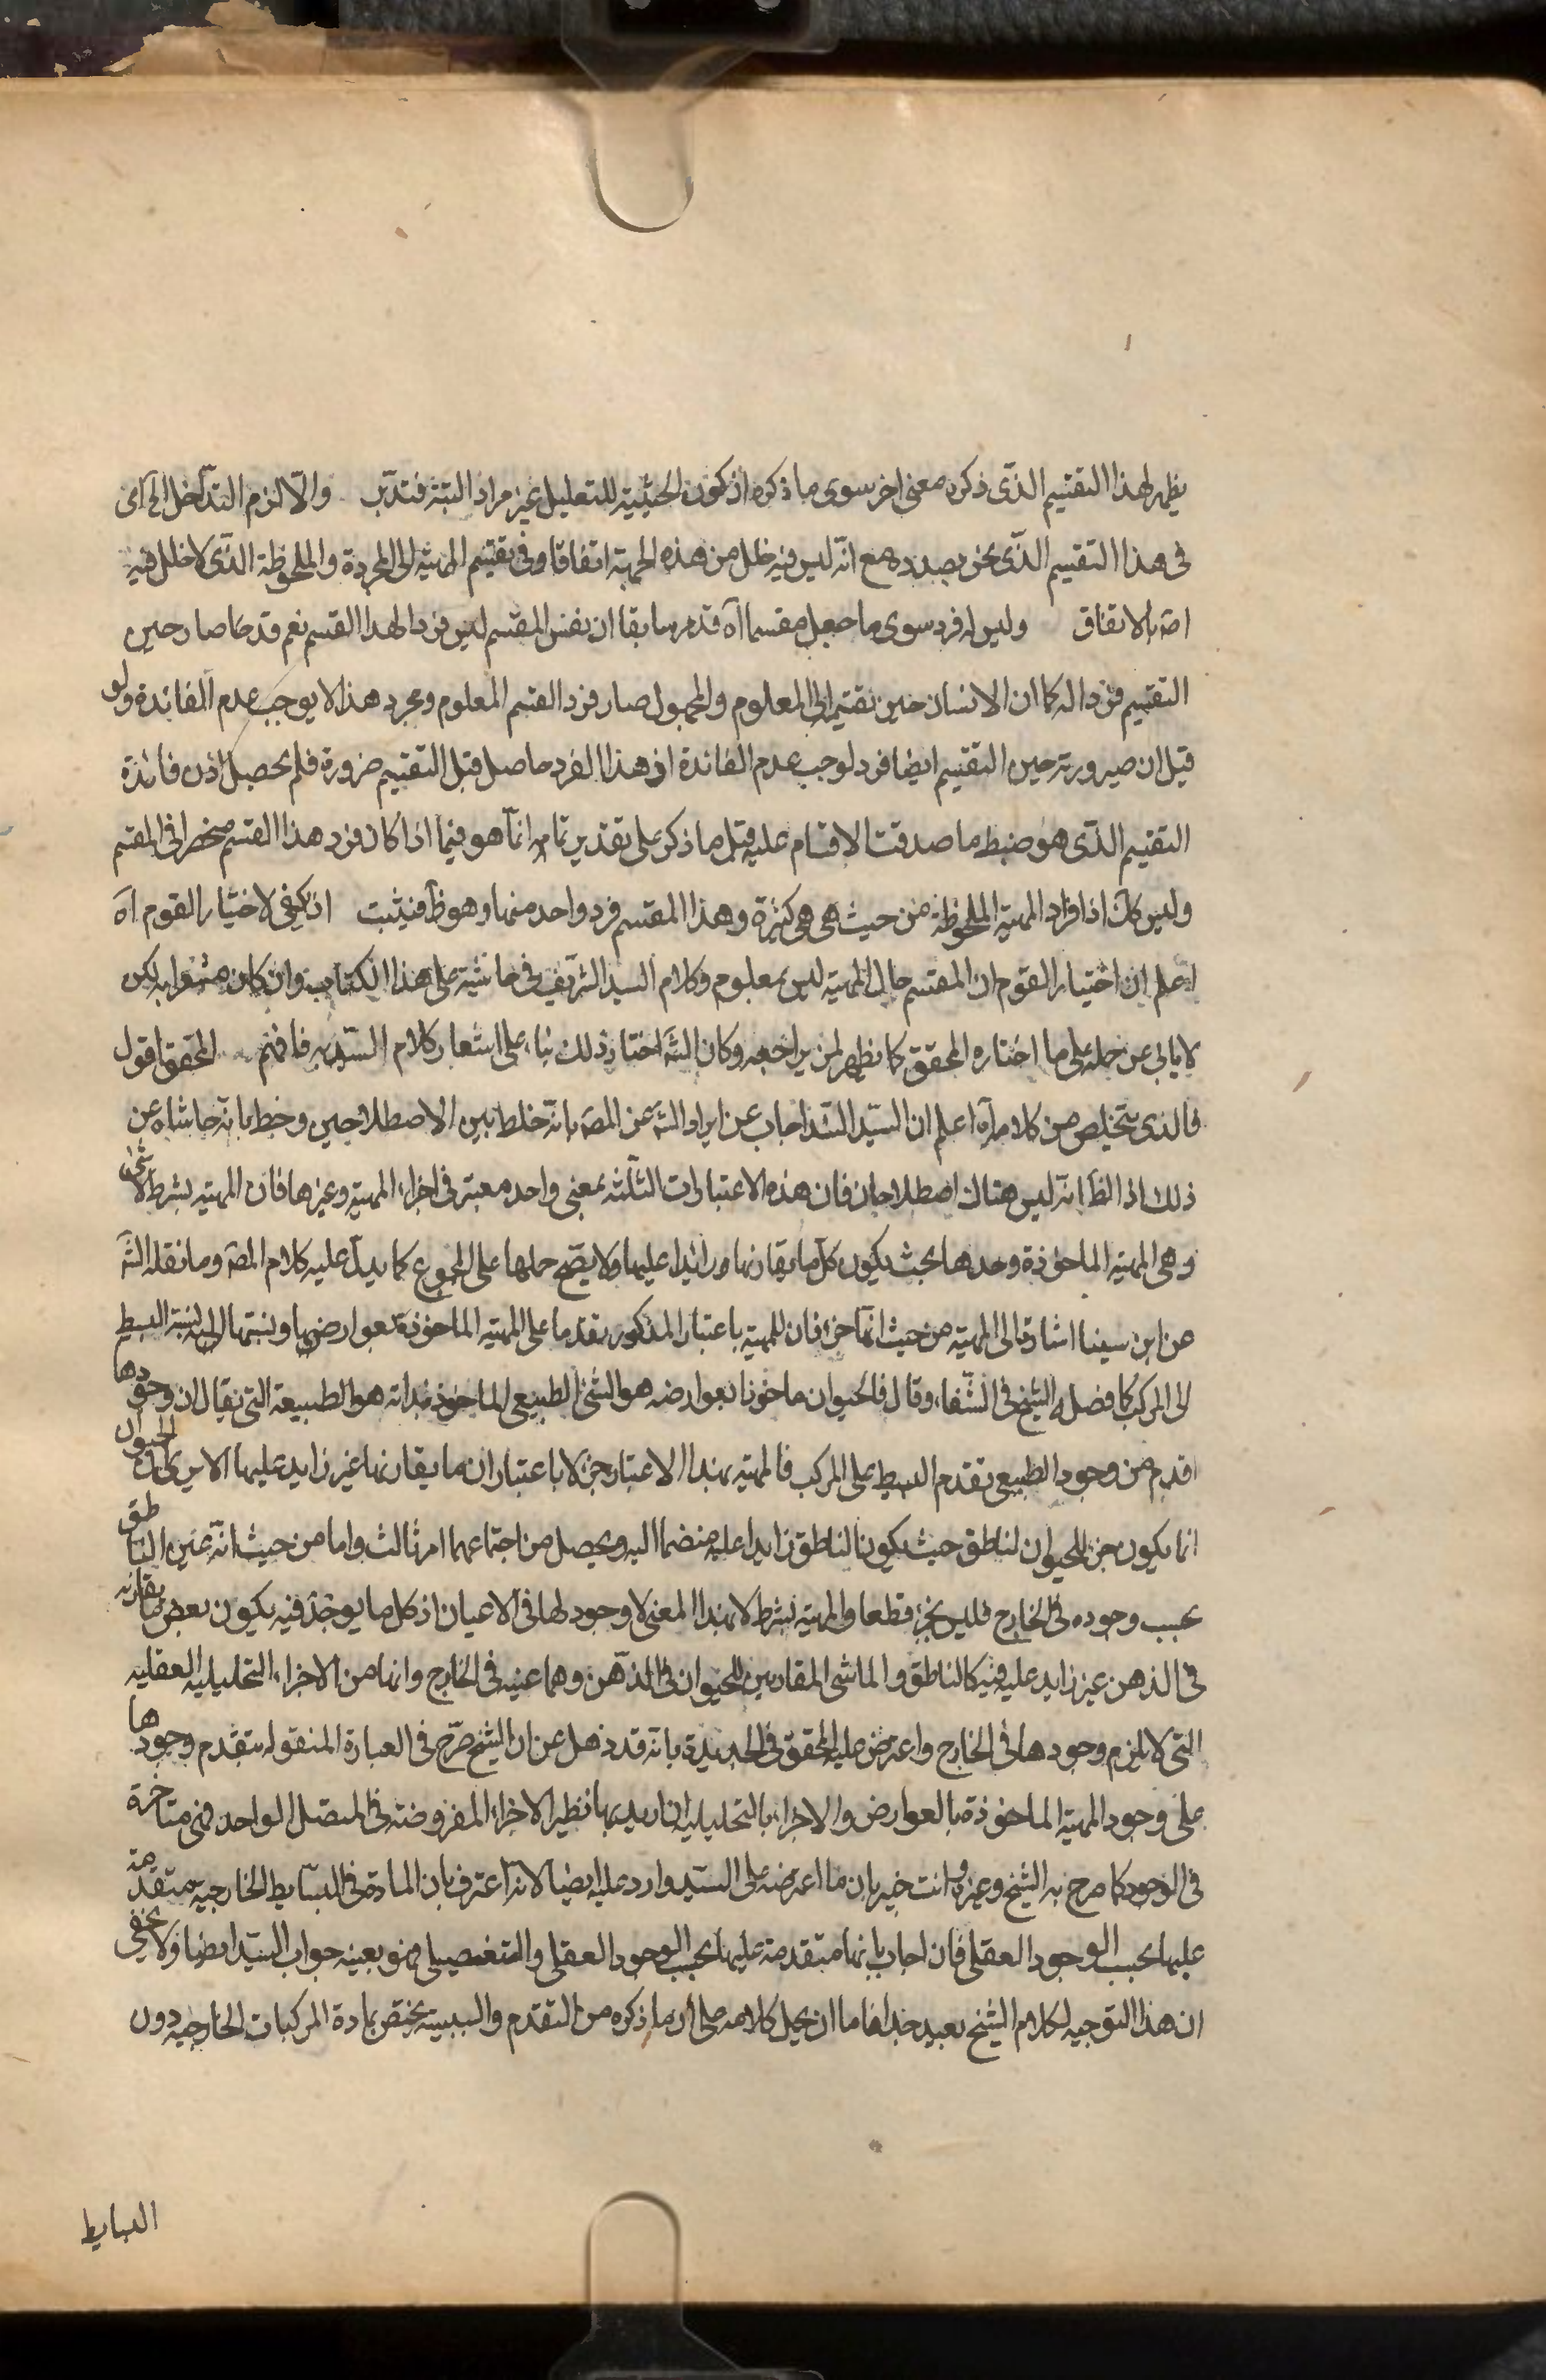 يظهر لهذا التقسيم الذى ذكره معنى اخر سوى ما ذكره اذ كون الحيثية للتعليل غير مراد البتة فتدبر والّا لزم التداخل الخ اى
فى هذا التقسيم الذى نحن بصدده مع انه ليس فيه خلل من هذه الجهة اتفاقا وفى تقسيم المهية الى المجردة والملحوظة الذى لا خلل فيه
اصَ بالاتفاق وليس له فرد سوى ما جعل مقسما آه قد مر سابقا ان نفس المقسم ليس فردا لهذا القسم نعم قد صار حين
التقسيم فردا له كما ان الانسان حين تقسيمه الى المعلوم والمجهول صار فرد القسم المعلوم ومجرد هذا لا يوجب عدم الفائدة ولو
قيل ان صيرورته حين التقسيم ايضا فردا يوجب عدم الفائدة اذ هذا الفرد حاصل قبل التقسيم ضرورة فلم يحصل اذن فائدة
التقسيم الذى هو ضبط ما صدقت الاقسام عليه قيل ما ذكر على تقدير تمامه انما هو فيما اذا كان فرد هذا القسم منحصرا فى المقسم
وليس كك اذ افراد المهية الملحوظة من حيث هى هى كثيرة وهذا المقسم فرد واحد منها وهو ظ فيثبت اذ يكفى لاختيار القوم آه
اعلم ان اختيار القوم ان المقسم حال المهية ليس بمعلوم وكلام السيد الشريف فى حاشيته على هذا الكتاب وان كان مشعرا به لكن
لا يابى عن حمله على ما اختاره المحقق كما يظهر لمن يراجعه وكان الشَ اختار ذلك بناء على اشعار كلام السيد به فافهم المحقق اقول
فالذى يتخلص من كلامه آه اعلم ان السيد السند اجاب عن ايراد الشَ عن المصَ بانه خلط بين الاصطلاحين وخبط بانه حاشاه عن
ذلك اذ الظَ انه ليس هناك اصطلاحان فان هذه الاعتبارات الثلثه بمعنى واحد معتبر فى اجزاء المهية وغيرها فان المهية بشرط لا شئ
وهى المهية الماخوذة وحدها بحيث يكون كل ما يقارنها زائدا عليها ولا يصح حملها على المجموع كما يدل عليه كلام المصَ وما نقله الشَ
عن ابن سينا اشارة الى المهية من حيث انها جزء فان للمهية باعتبار المذكور تقدما على المهية الماخوذة بعوارضها ونسبتها اليه نسبة البسيط
الى المركب كما فصله الشيخ فى الشفاء وقال فالحيوان ماخوذا بعوارضه هو الشئ الطبيعى الماخوذ بذاته هو الطبيعة التى يقال ان وجودها
اقدم من وجود الطبيعى تقدم البسيط على المركب فالمهية بهذا الاعتبار جزء لا باعتبار ان ما يقارنها غير زايد عليها الا يرى ان الحيوان
انما يكون جزء للحيوان الناطق حيث يكون الناطق زايدا عليه منضما اليه ويحصل من اجتماعهما امر ثالث واما من حيث انه عين الناطق
بحسب وجوده فى الخارج فليس بجزء قطعا والمهية بشرط لا بهذا المعنى لا وجود لها فى الاعيان اذ كل ما يوجد فيه يكون بعض ما يقارنه
فى الذهن غير زايد عليه فيه كالناطق والماشى المقارنين للحيوان فى الذهن وهما عينه فى الخارج وانها من الاجزاء التحليليه العقليه
التى لا يلزم وجودها فى الخارج واعترض عليه المحقق فى الجديدة بانه قد ذهل عن ان الشيخ صرّح فى العبارة المنقوله بتقدم وجودها
على وجود المهية الماخوذة بالعوارض والاجزاء بالتحليليه ان اريد بها نظير الاجزاء المفروضة فى المتصل الواحد فهى متاخرة
فى الوجود كما صرح به الشيخ وغيره وانت خبير بان ما اعترضه على السيد وارد عليه ايضا لانه اعترف بان المادة فى البسايط الخارجية متقدمة
عليها بحسب الوجود العقلى فان اجاب بانها متقدمة عليها بحسب الوجود العقلى والتفصيلى فهو بعينه جواب السيد ايضا ولا يخفى
ان هذا التوجيه لكلام الشيخ بعيد جدا فاما ان يحمل كلامه على ان ما ذكره من التقدم والسببية يختص بمادة المركبات الخارجيه دون
البسايط